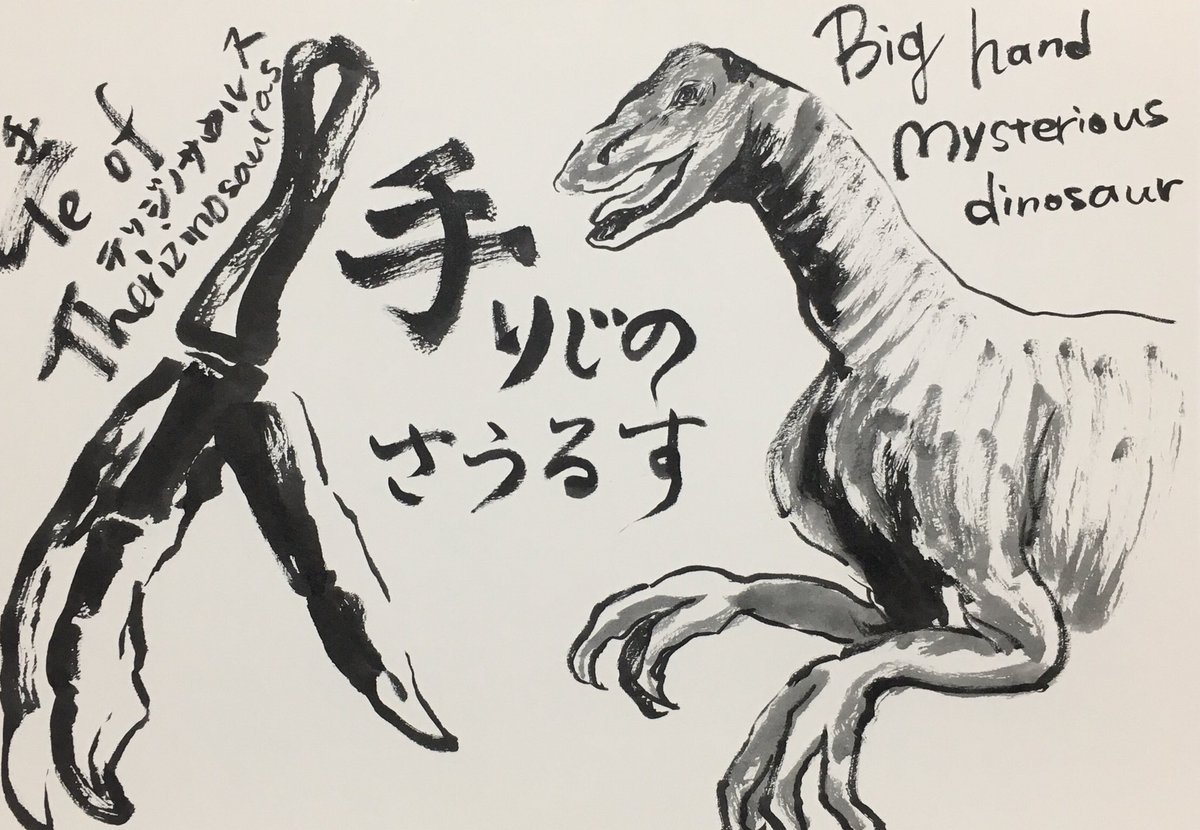 Te of
テリジノサウルス
Therizinosauras
手
りじの
さうるす
Big hand
mysterious
dinosaur